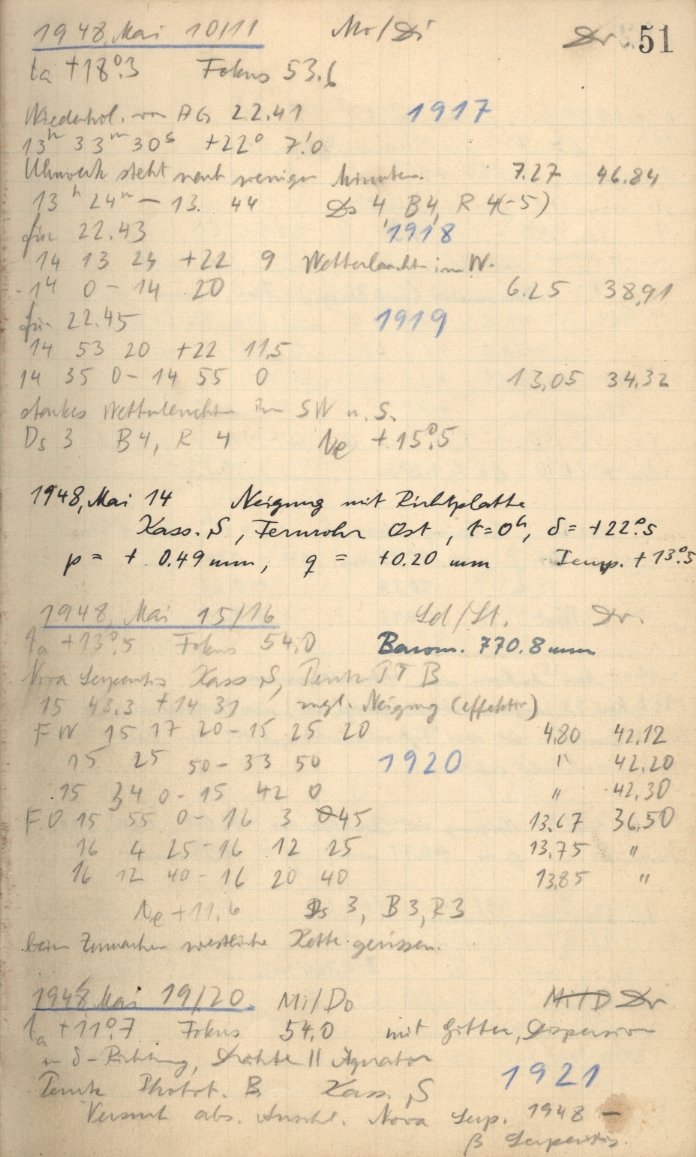 1948, Mai 10/11 Mo/Di Dr. 51
ta +18°.3 Fokus 53.6
Wiederhol. von AG 22.41 1917
13h 33m 30s +22° 7!0
Uhrwerk steht nach wenigen Minuten. 7.27 46.84
13h 24m – 13 44 Ds 4, B4, R 4(-5)
für 22.43 1918
14 13 24 +22 9 Wetterleucht. im W.
14 0 – 14 20 6.25 38,91
für 22.45 1919
14 53 20 +22 11,5
14 35 0 – 14 55 0 13,05 34,32
starkes Wetterleuchten im SW u. S.
Ds 3 B4, R 4 Ne +15°.5
1948, Mai 14 Neigung mit Richtplatte
Kass. S, Fernrohr Ost, t=0h, δ = +22°.5
p = + 0.49 mm, q = +0.20 mm Temp. +13°.5
1948, Mai 15/16 Sd/St. Dr.
ta +13°.5 Fokus 54.0 Barom. 770.8 mm
Nova Serpentis Kass S, B
15 43.3 +14 31 Neigung (effektiv)
FW 15 17 20 – 15 25 20 4,80 42,12
15 25 50 – 33 50 1920 " 42,20
15 34 0 – 15 42 0 " 42,30
FO 15 55 0 – 16 3 45 13.67 36,50
16 4 25 – 16 12 25 13,75 "
16 12 40 – 16 20 40 13,85 "
Ne +11.6 Ds 3, B3, R3
beim Zumachen westliche Kette gerissen.
1948 Mai 19/20 Mi/Do Dr
ta +11°.7 Fokus 54.0 mit Gitter, Dispersion
in δ-Richtung, Drähte || Äquator
Phot. B. Kass. S 1921
Versuch abs. Anschl. Nova Serp. 1948 –
β Serpentis.